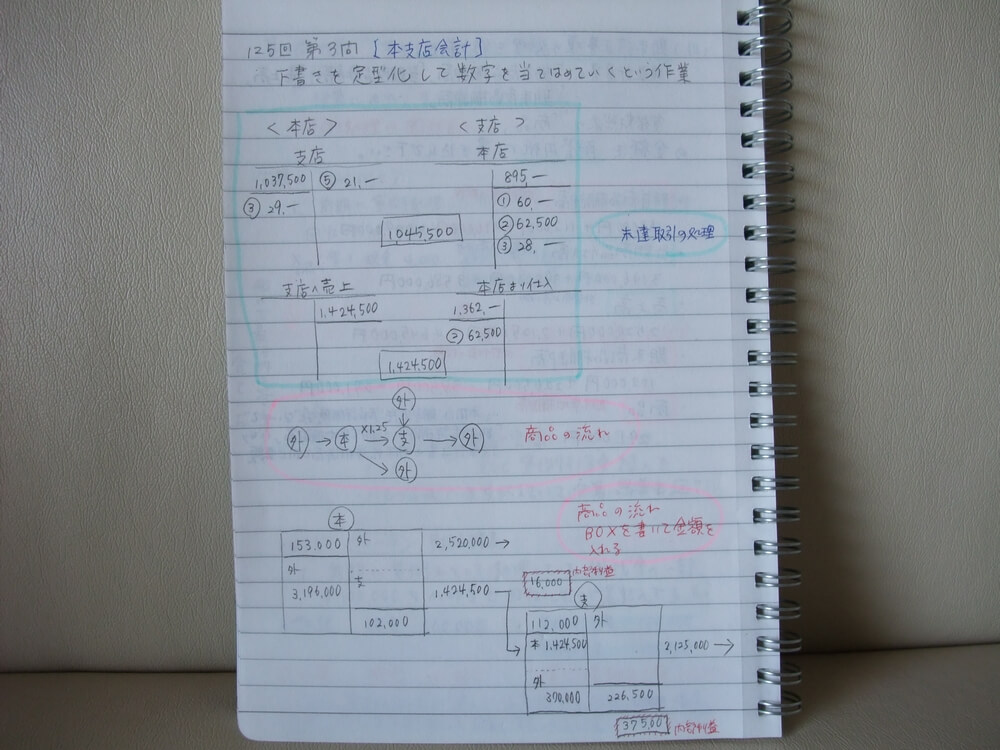 125回 第3問 [本支店会計]
下書きを定型化して数字を当てはめていくという作業
<本店> <支店>
支店 本店
1,037,500 ⑤ 21,― 895,―
③ 29,― ① 60 ―
1,045,500 ② 62,500
③ 28,―
未達取引の処理
支店へ売上 本店より仕入
1,424,500 1,362,―
② 62,500
1,424,500
外
外 → 本 ×1.25 → 支 → 外
外
商品の流れ
商品の流れ
BOXを書いて金額を
入れる
本
153,000 外 2,520,000 →
外 支
3,196,000 1,424,500
102,000
16,000 内部利益
支
112,000 外
本 1,424,500 2,125,000 →
外
370,000 226,500
37500 内部利益